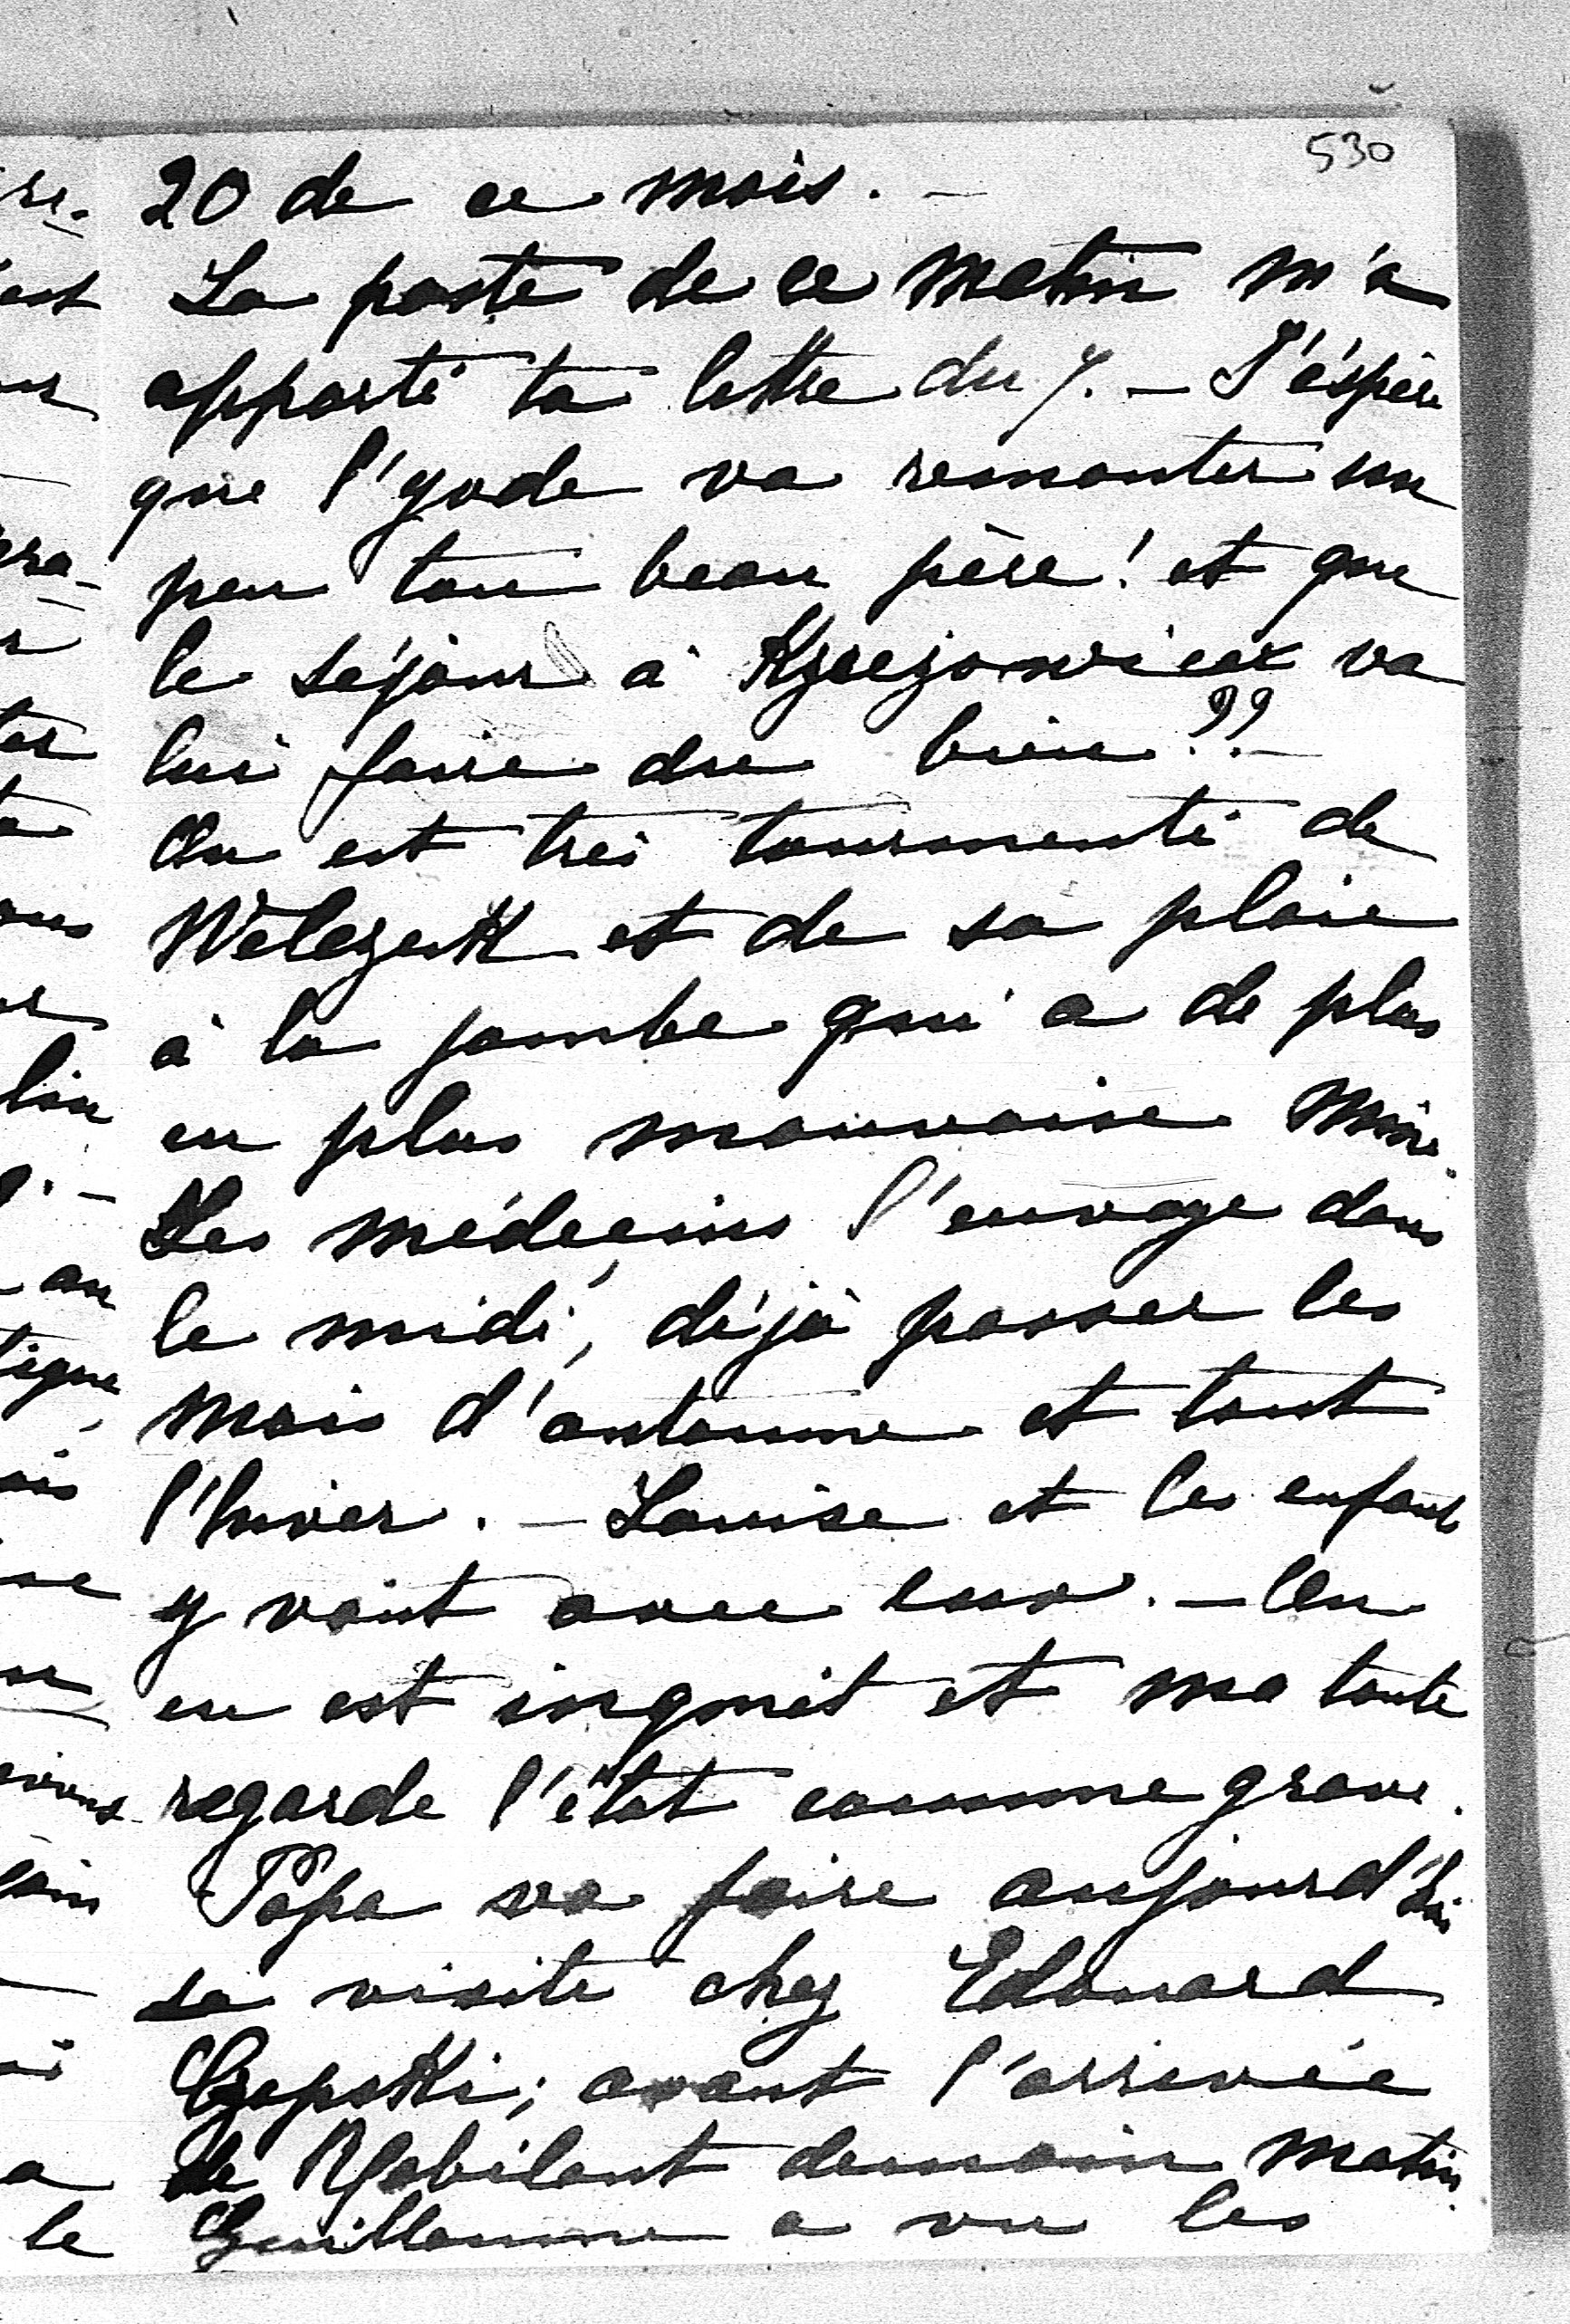 530
20 de ce mois. —
La poste de ce matin m'a
apporté ta lettre du 7. — J'éspère
que l'yode va remonter un
peu ton beau père! et que
le séjour à va
lui faire du bien?? —
On est très tourmenté de
Welczek et de sa plaie
à la jambe qui a de plus
en plus mauvaise mine.
Les médecins l'envoye dans
le midi, déjà passer les
mois d'automne et tout
l'hiver. — Louise et les enfants
y vont avec eux. — On
en est inquiet et ma tante
regarde l'état comme grave.
Papa va faire aujourd'hui
sa visite chez Edouard
Czapski; avant l'arrivée
de Robilant demain matin.
Guillaume a vu les